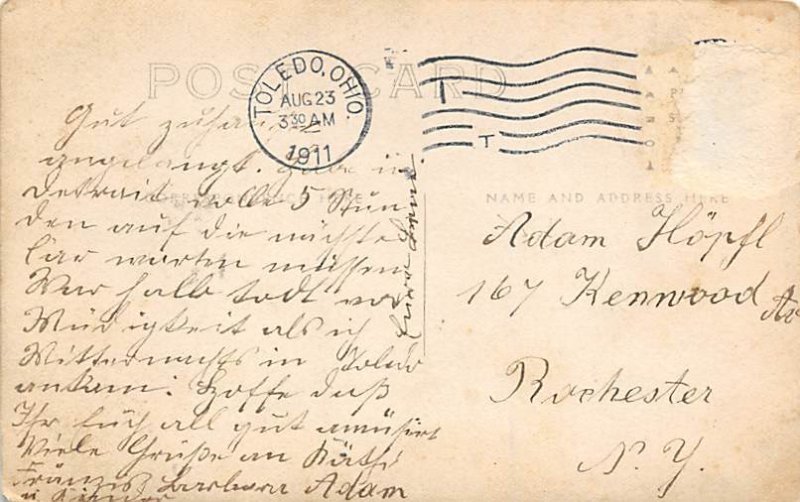 POST CARD
TOLEDO, OHIO.
AUG 23
3 30 AM
1911
T
T
Gut zuhause
angelangt. habe in
Detroit volle 5 Stun
den auf die nächste
Car warten müssen
War halb todt vor
Müdigkeit als ich
Mitternachts in Toledo
ankam. Hoffe daß
Ihr Euch all gut amüsirt
Viele Grüße an Käthi
Barbara Adam
u Kinder
NAME AND ADDRESS HERE
Adam Höpfl
167 Kenwood Av
Rochester
N. Y.